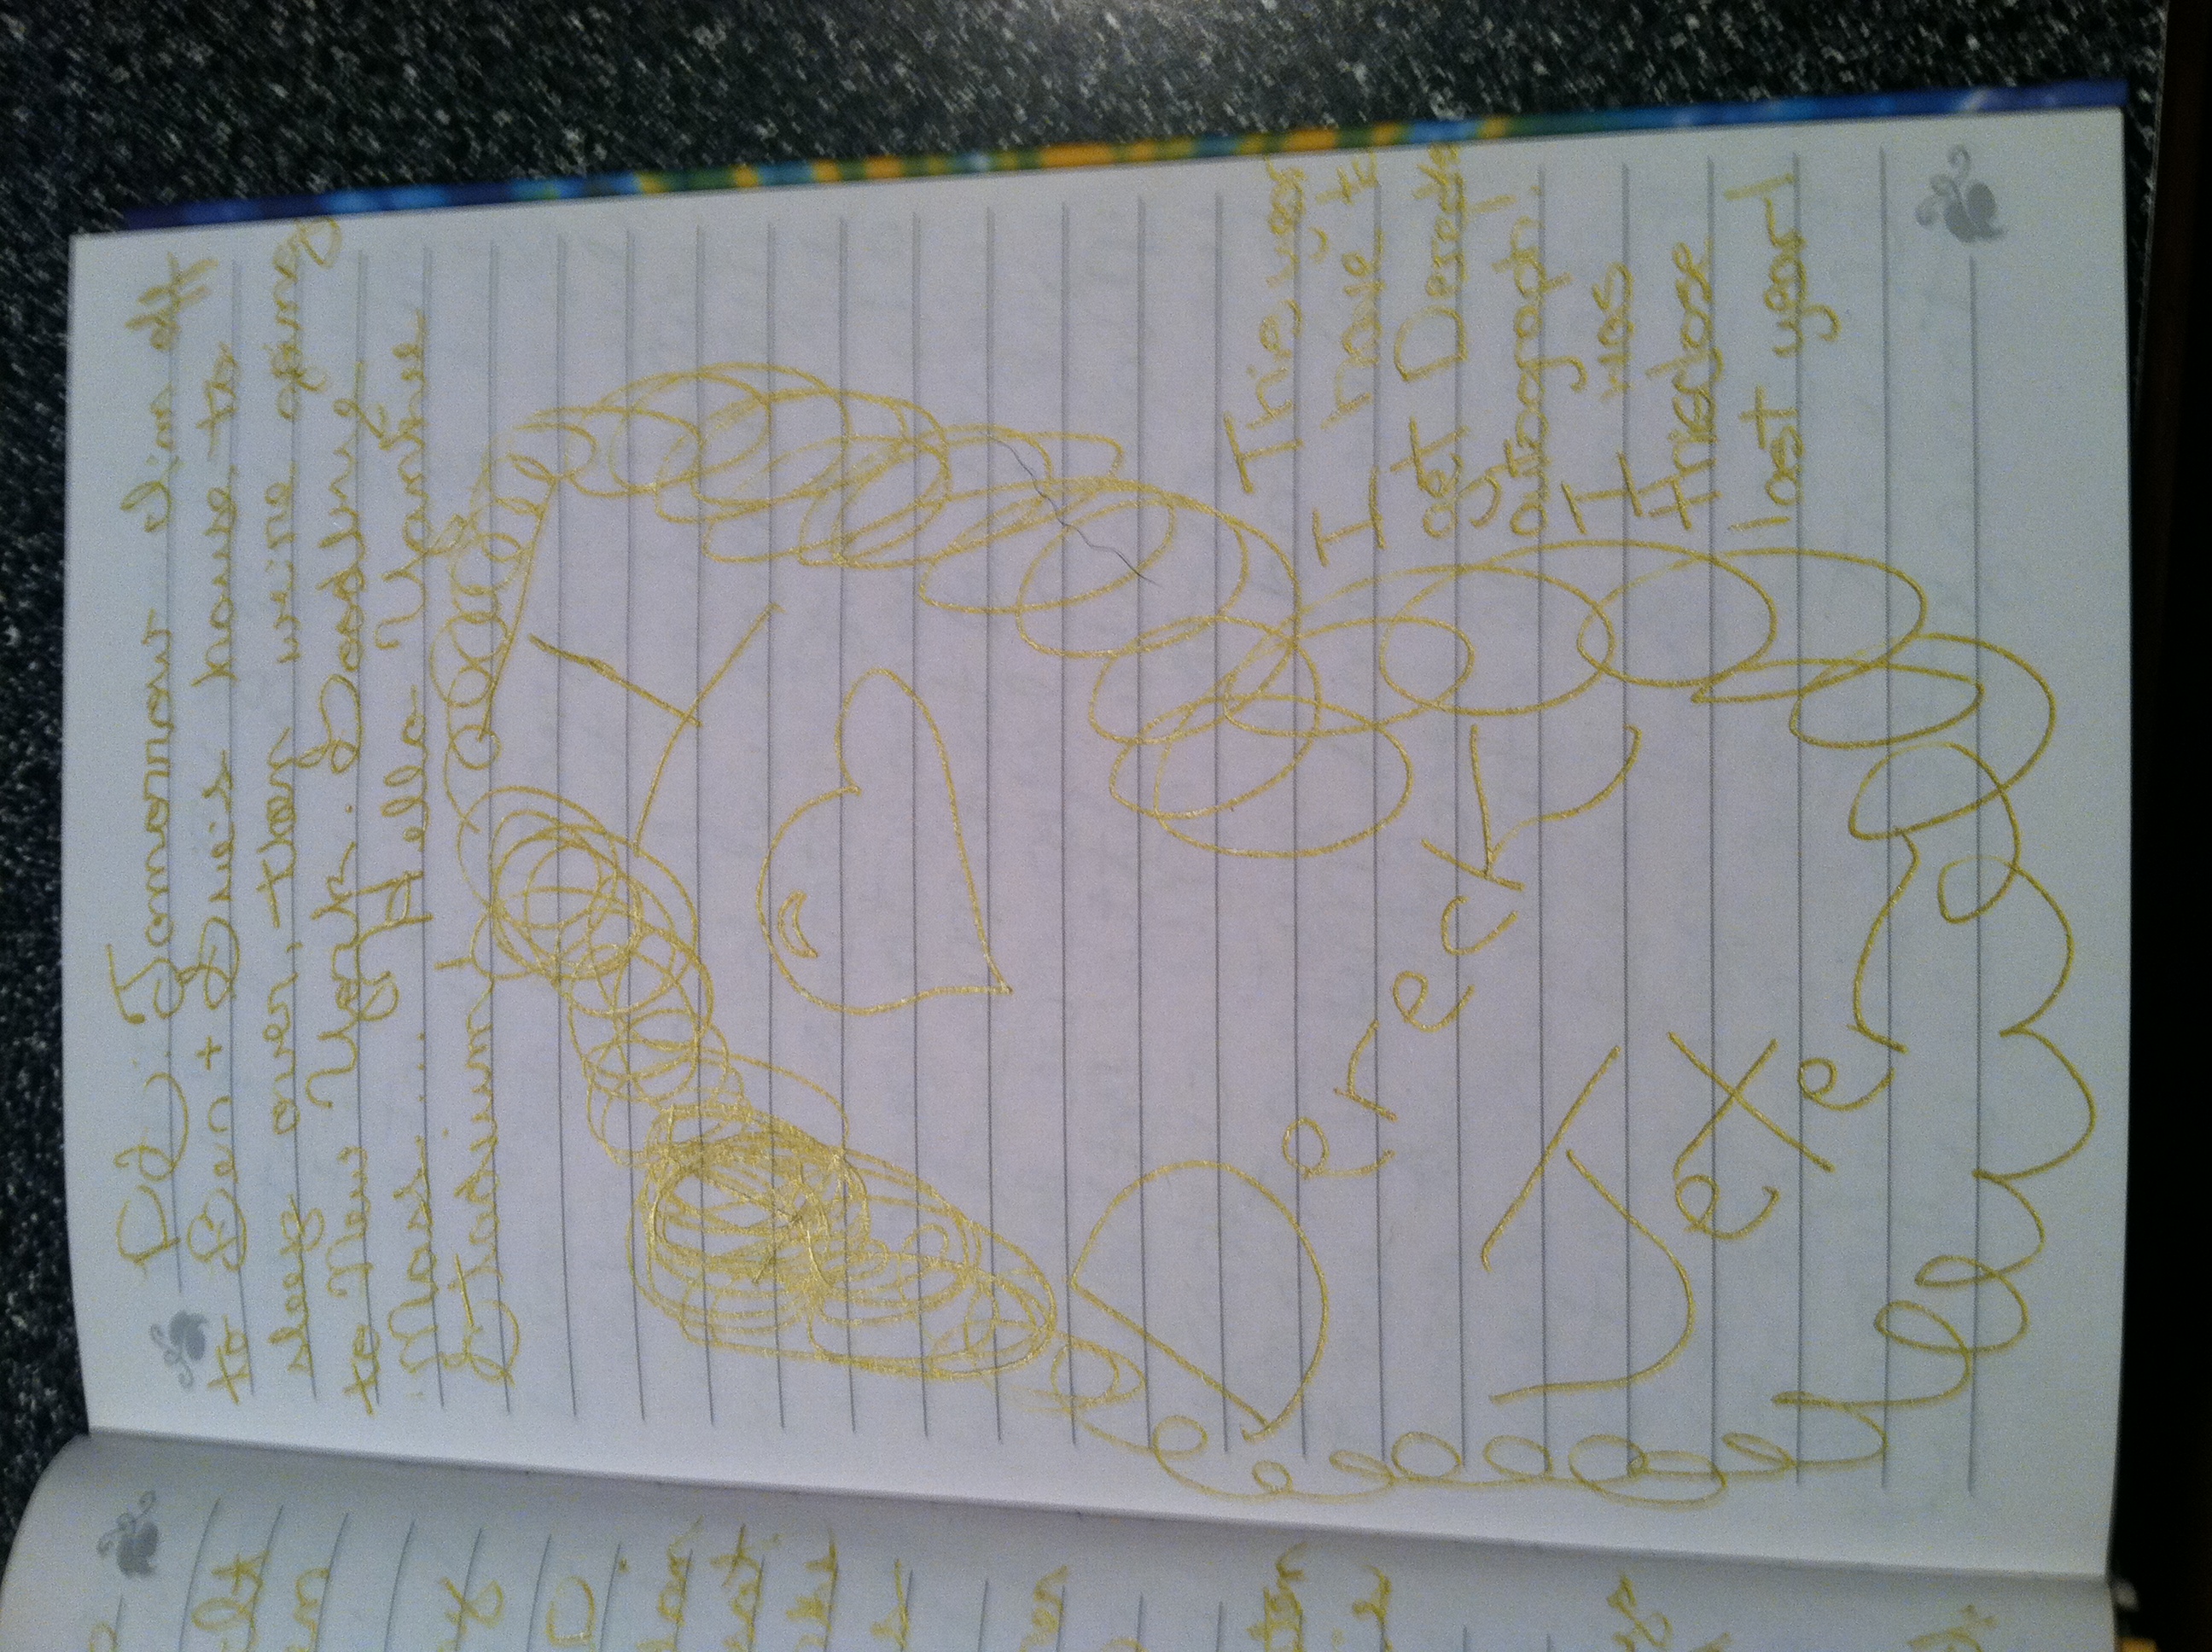 PS: Tomorrow I'm off
to Ben + house, to
sleep over, then we're going
to New York. Goodbye
Mass... Hello Yankee
Stadium!
I
Derek
Jeter
This year
I have to
get Derek's
autograph.
I was
thisclose
last year!